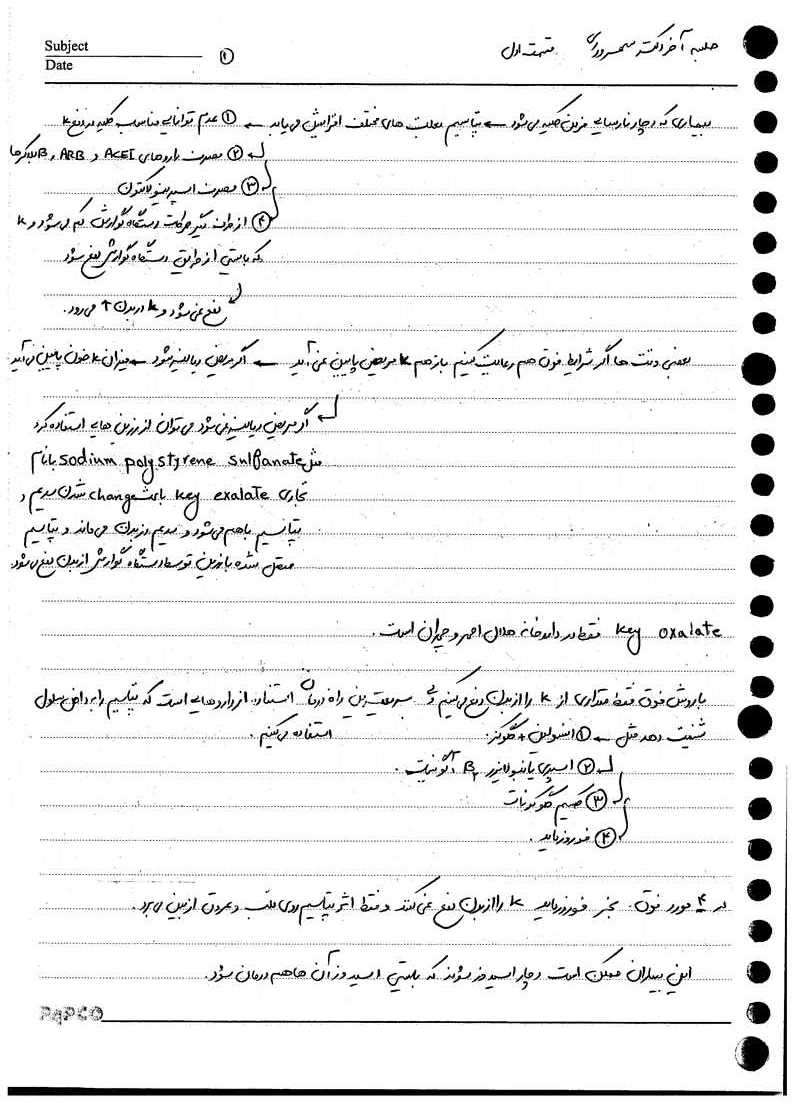 Subject
Date
①
جلسه آخر دکتر سهروردی قسمت اول
بیماری که دچار نارسایی مزمن کلیه می‌شود ← پتاسیم بعلت های مختلف افزایش می‌یابد ← ① عدم توانایی مناسب کلیه در دفع k
② مصرف داروهای ACEI و ARB و B بلاکرها
③ مصرف اسپیرونولاکتون
④ از طرف دیگر حرکات دستگاه گوارش کم می‌شود و k
که بایستی از طریق دستگاه گوارش دفع شود
دفع نمی‌شود و k در بدن ↑ می‌رود.
بعضی وقت ها اگر شرایط فوق هم رعایت کنیم باز هم k مریض پایین نمی آید ← اگر مریض دیالیز شود ← میزان k خون پایین می آید
اگر مریض دیالیز نمی‌شود می‌توان از رزین هایی استفاده کرد
مثل sodium polystyrene sulfanate بانام
تجاری key exalate باعث change شدن سدیم و
پتاسیم باهم می‌شود و سدیم در بدن می‌ماند و پتاسیم
متصل شده با رزین توسط دستگاه گوارش از بدن دفع می‌شود.
key oxalate فقط در داروخانه هلال احمر و جمهران است.
با روش فوق فقط مقداری از k را از بدن دفع می‌کنیم ولی سریعترین راه درمان استفاده از داروهایی است که پتاسیم را به داخل سلول
شیفت دهد مثل ← ① انسولین + گلوکز. استفاده می‌کنیم.
② اسپری یا نبولایزر B₂ آگونیست.
③ کلسیم گلوکونات
④ فوروزماید.
در ۴ مورد فوق. بجز فوروزماید k را از بدن دفع نمی کنند و فقط اثر پتاسیم روی قلب و عروق از بین می برد.
این بیماران ممکن است دچار اسیدوز شوند که بایستی اسیدوز آن ها هم درمان شود.
PAPCO